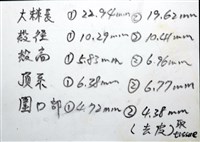 大棘長 ① 22.94mm ② 19.62mm
殼徑 ① 10.29mm ② 10.41mm
殼高 ① 5.83mm ② 6.96mm
頂系 ① 6.38mm ② 6.77mm
圍口部 ① 4.72mm ② 4.38mm
(去皮) 取
tissue